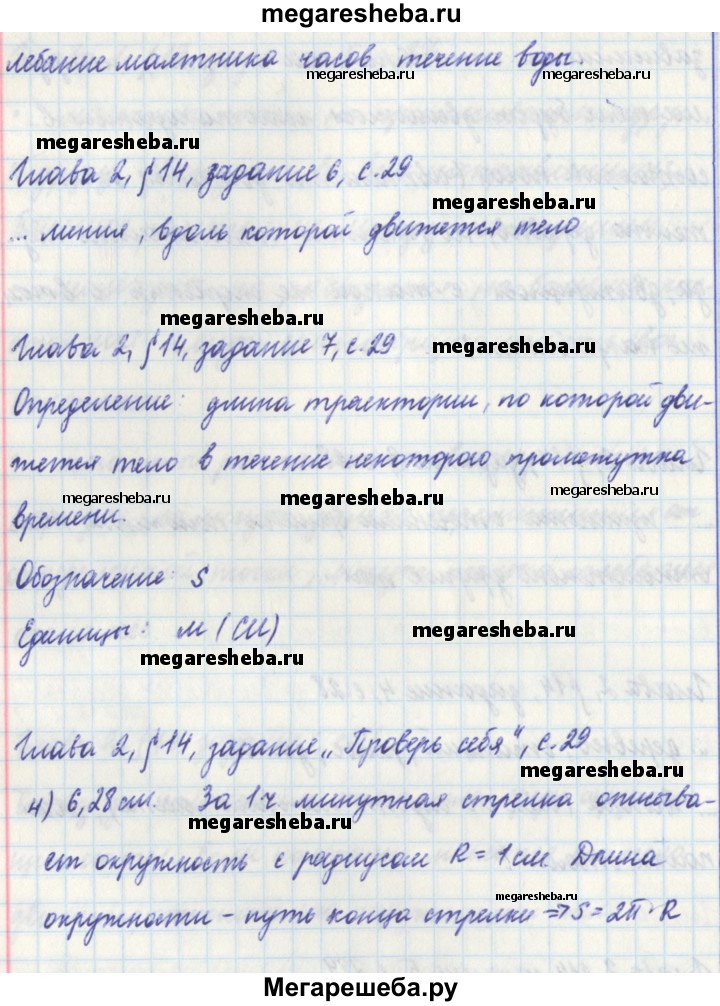 megaresheba.ru
лебание маятника часов, течение воды.
megaresheba.ru
megaresheba.ru
megaresheba.ru
Глава 2, § 14, задание 6, с. 29
megaresheba.ru
... линия, вдоль которой движется тело
megaresheba.ru
Глава 2, § 14, задание 7, с. 29
megaresheba.ru
Определение: длина траектории, по которой дви-
жется тело в течение некоторого промежутка
megaresheba.ru
megaresheba.ru
megaresheba.ru
времени.
Обозначение: S
Единицы: м (СИ)
megaresheba.ru
megaresheba.ru
Глава 2, § 14, задание „Проверь себя", с. 29
megaresheba.ru
4) 6,28 см. За 1 ч минутная стрелка описыва-
megaresheba.ru
ет окружность с радиусом R = 1 см. Длина
megaresheba.ru
окружности – путь конца стрелки ⇒ S = 2π · R
Мегарешеба.ру